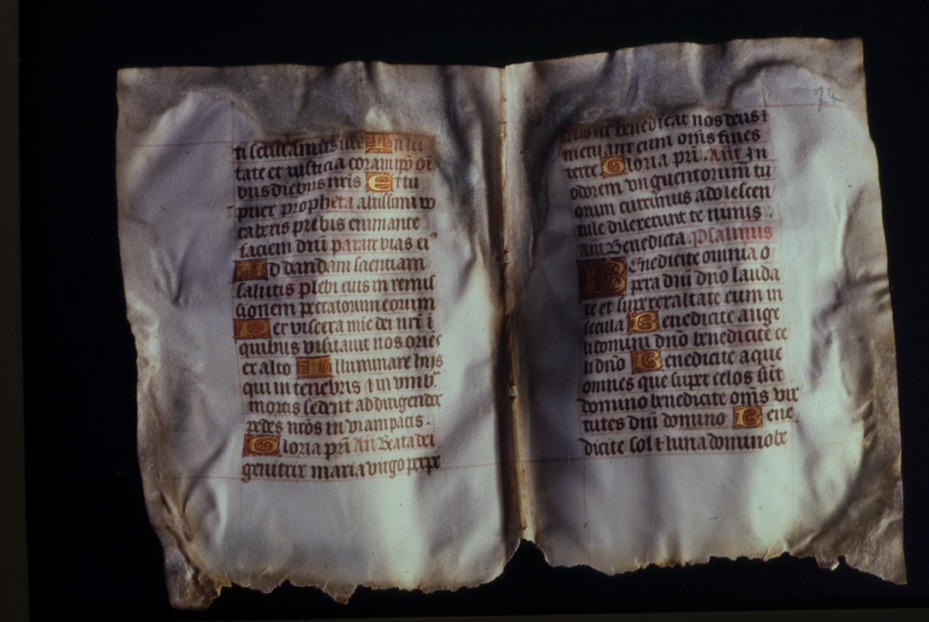 In sci
tate et iusticia coram ipo oi
bus diebus nris Et tu
puer propheta altissimi vo
caberis preibis enim ante
faciem dni parare vias ei
Ad dandam scientiam
salutis plebi eius in remis
sionem peccatorum eorum
Per viscera mie dei nri i
quibus visitavit nos oriens
ex alto Illuminare hijs
qui in tenebris et in umb
mortis sedent ad dirigendos
pedes nros in viam pacis.
Gloria pri An Beata dei
genitrix maria virgo perpe
24
deus nr benedicat nos deus et
metuant eum oms fines
terre Gloria pri. Ant In
odorem unguentorum tu
orum currimus adolescen
tule dilexerunt te nimis
An Benedicta. Psalmus
Benedicite omnia o
pera dni dno lauda
te et superexaltate eum in
secula Benedicite ange
li domini dno benedicite ce
li dno Benedicite aque
omnes que super celos sut
domino benedicite oms vir
tutes dni domino Bene
dicite sol et luna domino be